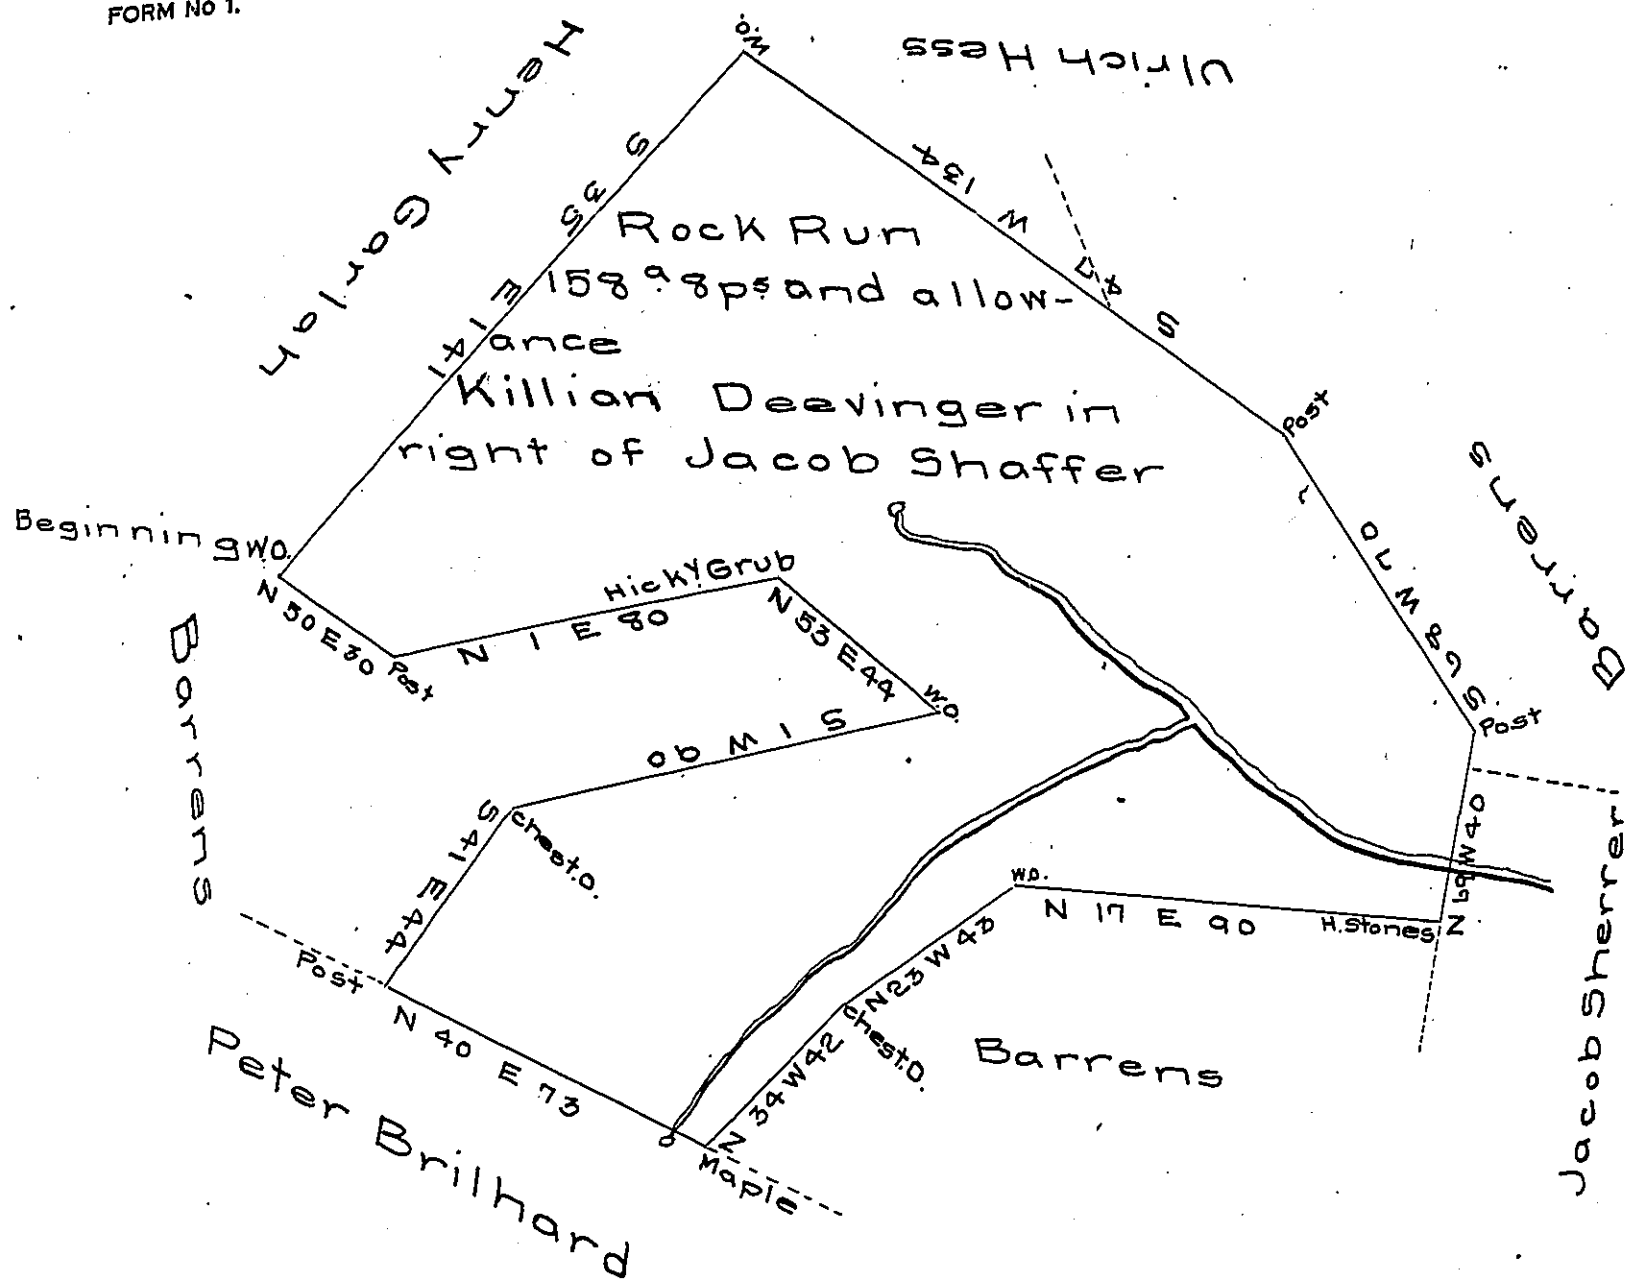 FORM No 1.
Henry Garlah
W.O.
Ulrich Hess
S 35 E 141
S 47 W 134
Rock Run
158 a 8 ps and allow-
ance
Killian Deevinger in
right of Jacob Shaffer
Post
Barrens
S 68 W 70
Post
Beginning W.O.
N 50 E 30
Post
N 1 E 80
Hicky Grub
N 53 E 44
W.O.
S 1 W 90
Barrens
Chest.O.
S 41 E 44
Post
N 40 E 73
Peter Brilhard
Maple
N 34 W 42
Chest.O.
N 23 W 43
W.O.
N 17 E 90
H. Stones
N 69 W 40
Barrens
Jacob Sherrer